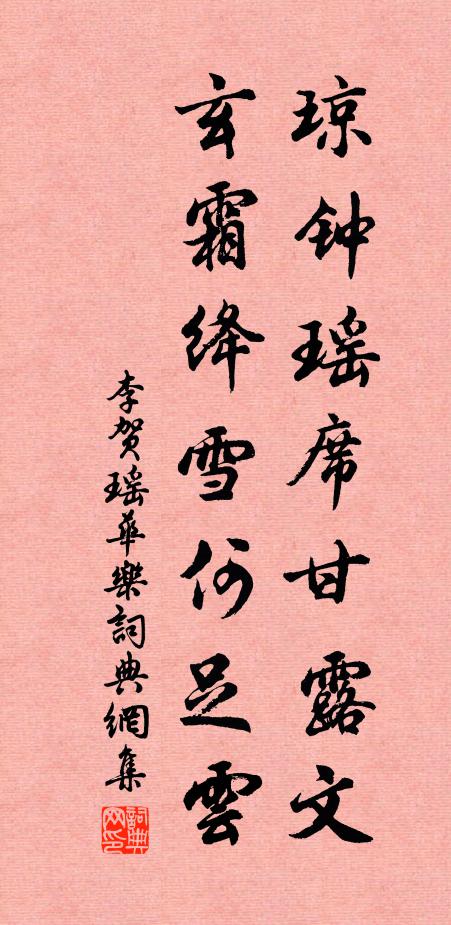 琼钟瑶席甘露文
玄霜绛雪何足雲
李贺瑶華樂詞典網集
詞典网印